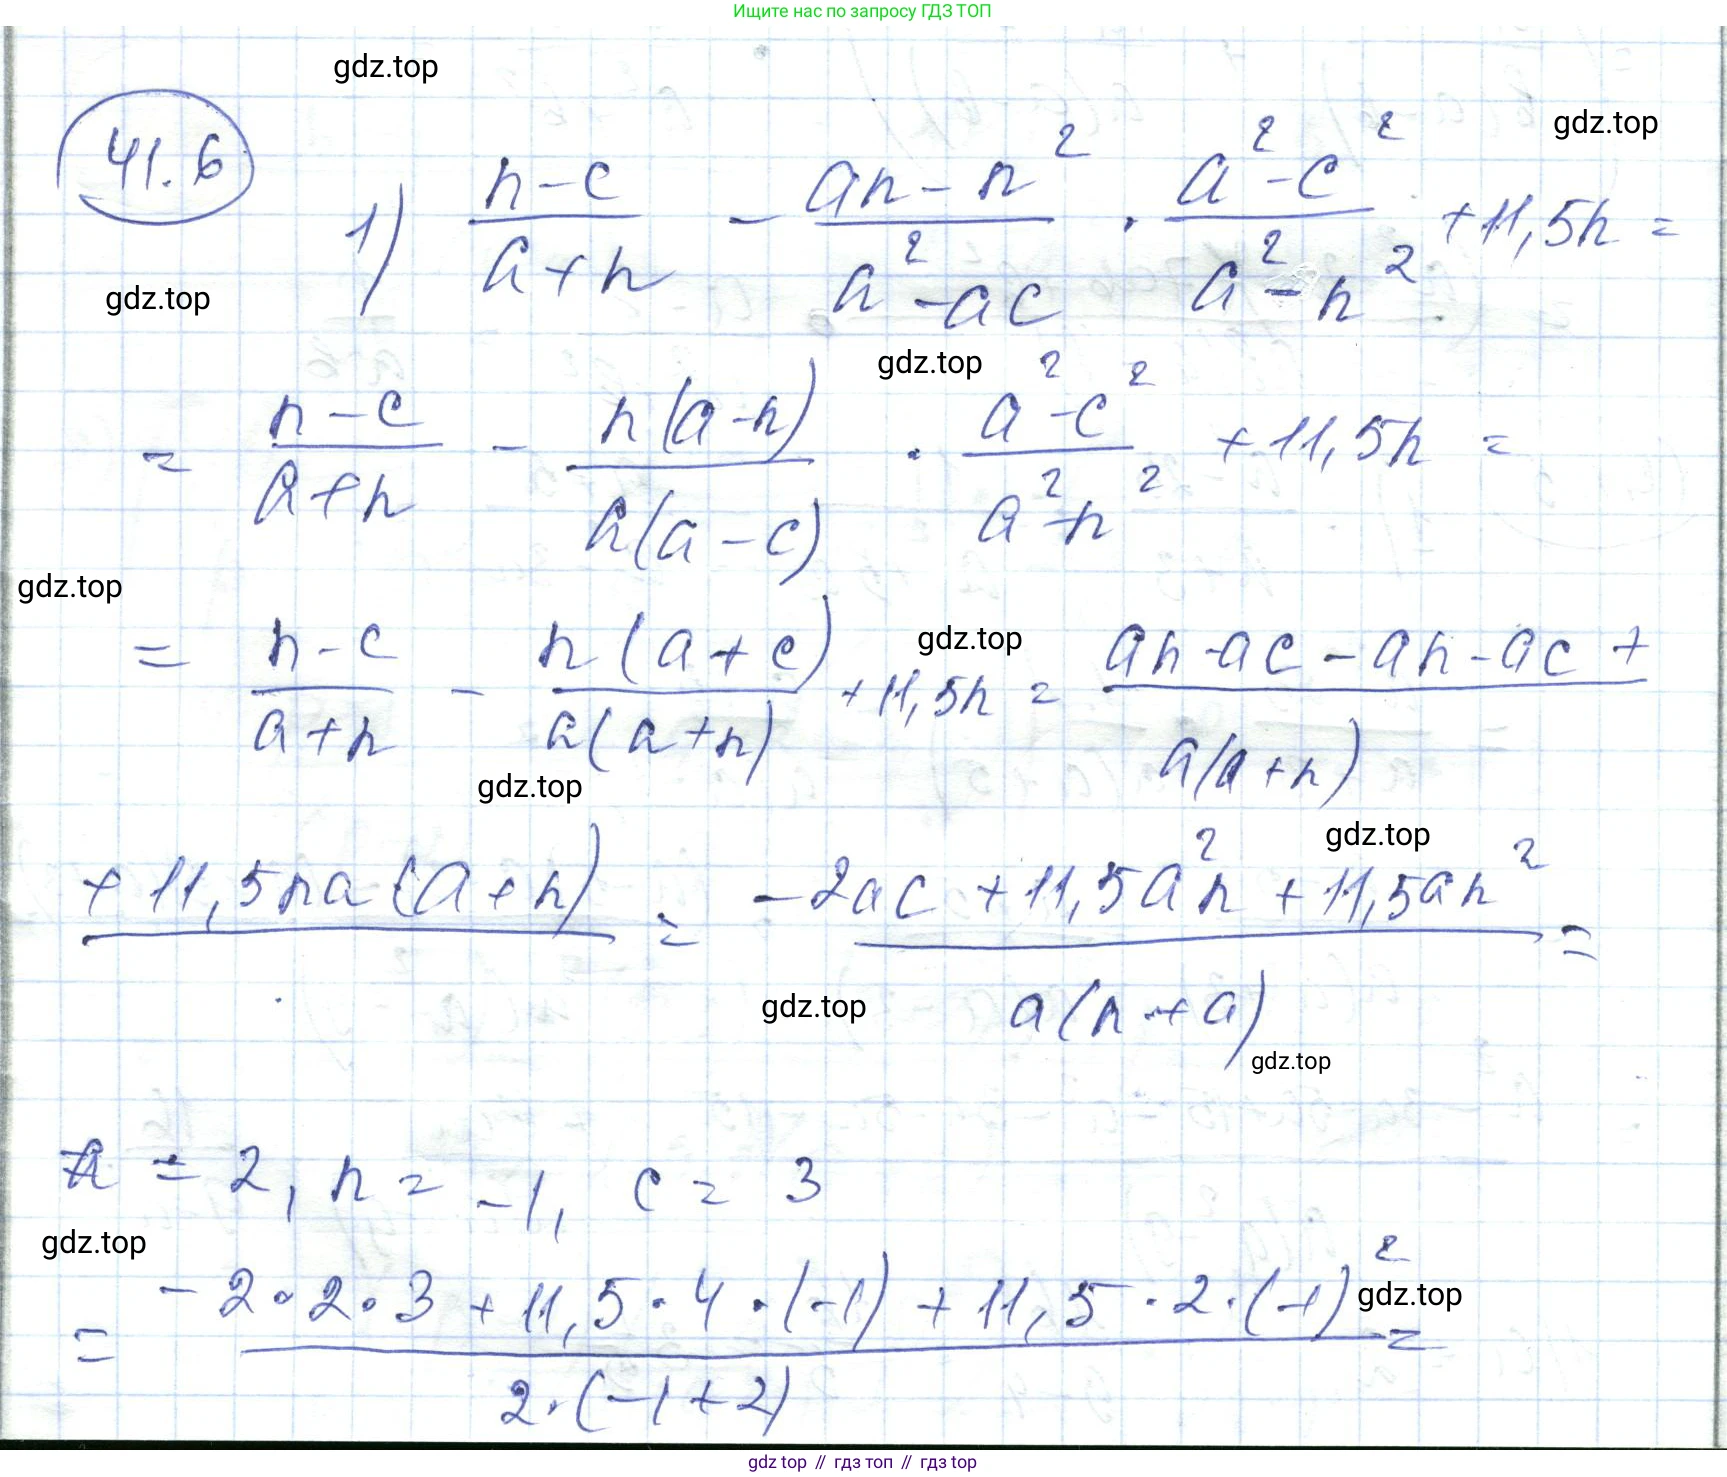 Ищите нас по запросу ГДЗ ТОП
gdz.top
41.6
gdz.top
1) \frac{n-c}{a+n} - \frac{an-n^2}{a^2-ac} \cdot \frac{a^2-c^2}{a^2-n^2} + 11,5n =
gdz.top
gdz.top
= \frac{n-c}{a+n} - \frac{n(a-n)}{a(a-c)} \cdot \frac{a^2-c^2}{a^2-n^2} + 11,5n =
gdz.top
gdz.top
= \frac{n-c}{a+n} - \frac{n(a+c)}{a(a+n)} + 11,5n = \frac{an-ac-an-ac+}{a(a+n)}
gdz.top
gdz.top
\frac{+11,5na(a+n)}{} = \frac{-2ac+11,5a^2n+11,5an^2}{a(n+a)} =
gdz.top
gdz.top
a = 2, n = -1, c = 3
gdz.top
gdz.top
= \frac{-2 \cdot 2 \cdot 3 + 11,5 \cdot 4 \cdot (-1) + 11,5 \cdot 2 \cdot (-1)^2}{2 \cdot (-1+2)} =
gdz.top // гдз топ // гдз top